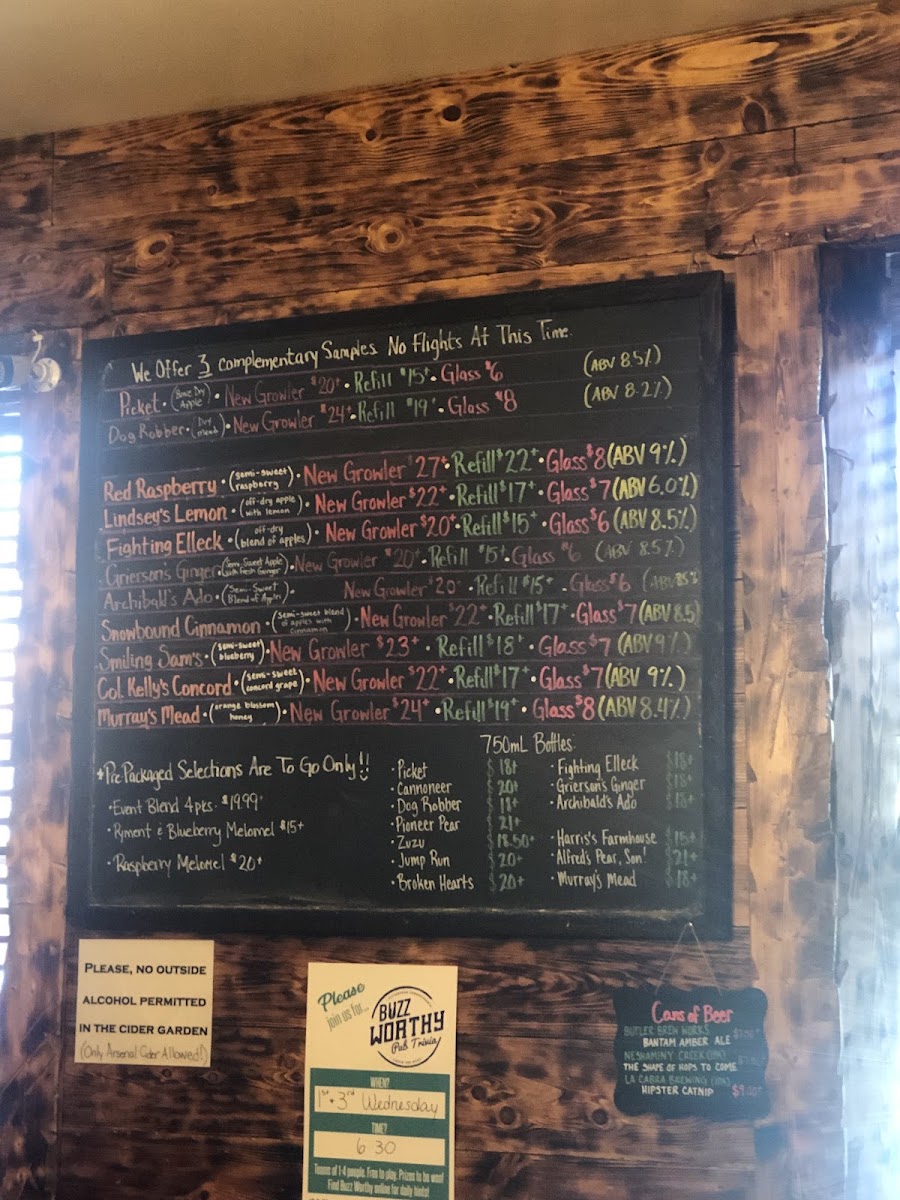 We Offer 3 complementary Samples. No Flights At This Time.
Picket • (Bone Dry Apple) • New Growler $20+ • Refill $15+ • Glass $6 (ABV 8.5%)
Dog Robber • (Dry Mead) • New Growler $24+ • Refill $19+ • Glass $8 (ABV 8.2%)
Red Raspberry • (semi-sweet raspberry) • New Growler $27+ • Refill $22+ • Glass $8 (ABV 9%)
Lindsey's Lemon • (off-dry apple with lemon) • New Growler $22+ • Refill $17+ • Glass $7 (ABV 6.0%)
Fighting Elleck • (off-dry blend of apples) • New Growler $20+ • Refill $15+ • Glass $6 (ABV 8.5%)
Grierson's Ginger • (Semi-Sweet Apple with Fresh Ginger) • New Growler $20+ • Refill $15+ • Glass $6 (ABV 8.5%)
Archibald's Ado • (Semi-Sweet Blend of Apples) • New Growler $20+ • Refill $15+ • Glass $6 (ABV 8.5%
Snowbound Cinnamon • (semi-sweet blend of apples with cinnamon) • New Growler $22+ • Refill $17+ • Glass $7 (ABV 8.5)
Smiling Sam's • (semi-sweet blueberry) • New Growler $23+ • Refill $18+ • Glass $7 (ABV 9%)
Col. Kelly's Concord • (semi-sweet concord grape) • New Growler $22+ • Refill $17+ • Glass $7 (ABV 9%)
Murray's Mead • (orange blossom honey) • New Growler $24+ • Refill $19+ • Glass $8 (ABV 8.4%)
*Pre-Packaged Selections Are To Go Only!!
• Event Blend 4pks. $19.99+
• Pyment & Blueberry Melomel $15+
• Raspberry Melomel $20+
750mL Bottles:
• Picket $18+
• Cannoneer $20+
• Dog Robber $18+
• Pioneer Pear $21+
• Zuzu $18.50+
• Jump Run $20+
• Broken Hearts $20+
• Fighting Elleck $18+
• Grierson's Ginger $18+
• Archibald's Ado $18+
• Harris's Farmhouse $15+
• Alfred's Pear, Son! $21+
• Murray's Mead $18+
PLEASE, NO OUTSIDE
ALCOHOL PERMITTED
IN THE CIDER GARDEN
(Only Arsenal Cider Allowed!)
Please
join us for...
BUZZ
WORTHY
Pub Trivia
WHEN?
1st & 3rd Wednesday
TIME?
6:30
Teams of 1-4 people. Free to play. Prizes to be won!
Find Buzz Worthy online for daily hints!
Cans of Beer
BUTLER BREW WORKS
BANTAM AMBER ALE
NESHAMINY CREEK
THE SHAPE OF HOPS TO COME
LA CABRA BREWING
HIPSTER CATNIP